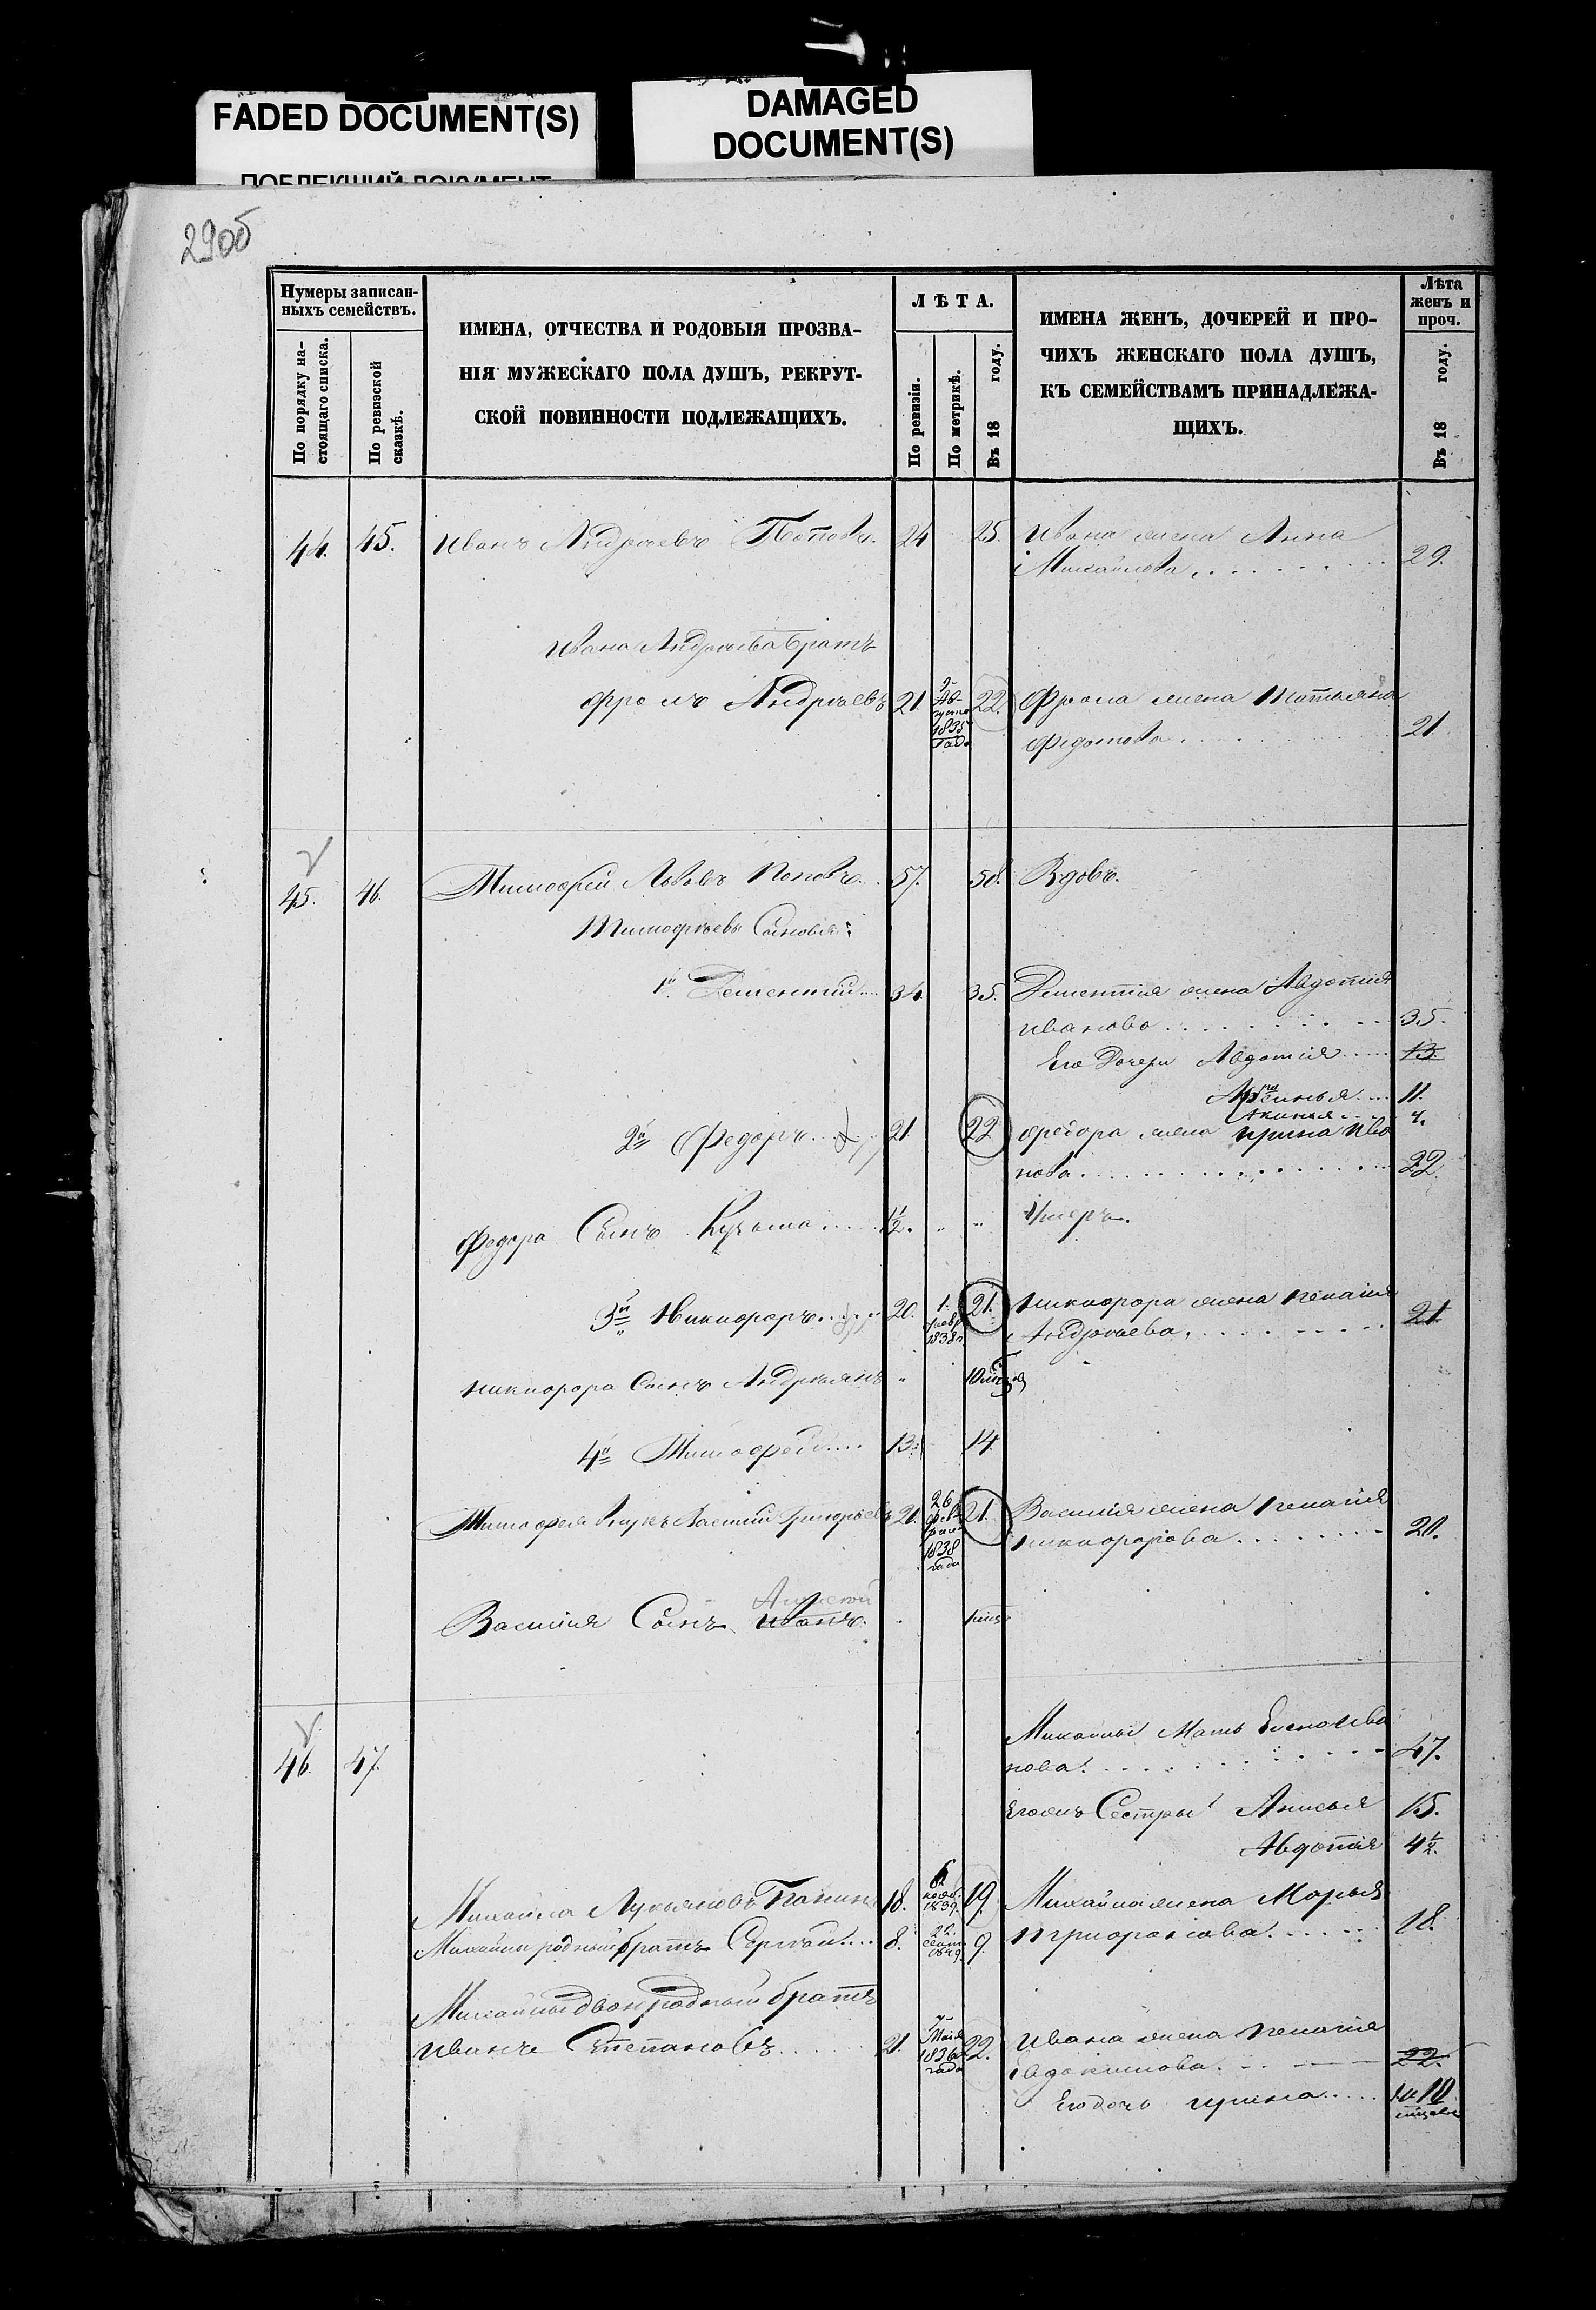 FADED DOCUMENT(S)
ПОБЛЕКШИЙ ДОКУМЕНТ
DAMAGED
DOCUMENT(S)
29об
Нумеры записан-
ныхъ семействъ.
По порядку на-
стоящаго списка.
По ревизской
сказкѣ.
ИМЕНА, ОТЧЕСТВА И РОДОВЫЯ ПРОЗВА-
НІЯ МУЖЕСКАГО ПОЛА ДУШЪ, РЕКРУТ-
СКОЙ ПОВИННОСТИ ПОДЛЕЖАЩИХЪ.
ЛѢТА.
По ревизіи.
По метрикѣ.
Въ 18 году.
ИМЕНА ЖЕНЪ, ДОЧЕРЕЙ И ПРО-
ЧИХЪ ЖЕНСКАГО ПОЛА ДУШЪ,
КЪ СЕМЕЙСТВАМЪ ПРИНАДЛЕЖА-
ЩИХЪ.
Лѣта
женъ и
проч.
Въ 18 году.
44. 45. Иванъ Андреевъ Поповъ. 24 25. Ивана жена Анна
Михайлова 29.
Ивана Андреева братъ
Фролъ Андреевъ 21. 1835 года 22. Фрола жена Татьяна
Федотова 21
45. 46. Тимофей Львовъ Поповъ 57. 58. Вдовъ.
Тимофеевы Сыновья:
1й Дементий 34. 35. Дементия жена Авдотия
Иванова 35.
Его Дочери Авдотия 13.
11.
Акинья 4.
2й Федоръ 21. 22 Федора жена Ирина Ива
нова 22.
Федора Сынъ Кузьма 1/2. " " Умеръ.
3й Никифоръ 20. 1. февр 1838 г. 21. Никифора жена Пелагия
Андреева 21
Никифора Сынъ Андреянъ " 10
4й Тимофей 13. 14
Тимофея Внукъ Василий Григорьевъ 21. 26 февраля 1838 года 21. Василия жена Пелагия
Никифорова 20.
Алексей
Василия Сынъ Иванъ.
46. 47. Михайлы Мать Елена Ива
нова 47.
Его же Сестры Анисья 15.
Авдотия 4 1/2.
Михайла Лукьяновъ Панинъ 18. 6 нояб. 1839. 19. Михайла жена Марья
18.
Михайлы родный братъ Сергей 8. 9.
Михайлы двоюродный братъ
Иванъ Степановъ 21. Мая 1836 года 22. Ивана жена Пелагия
Евдокимова 22.
Его дочь Ирина 10